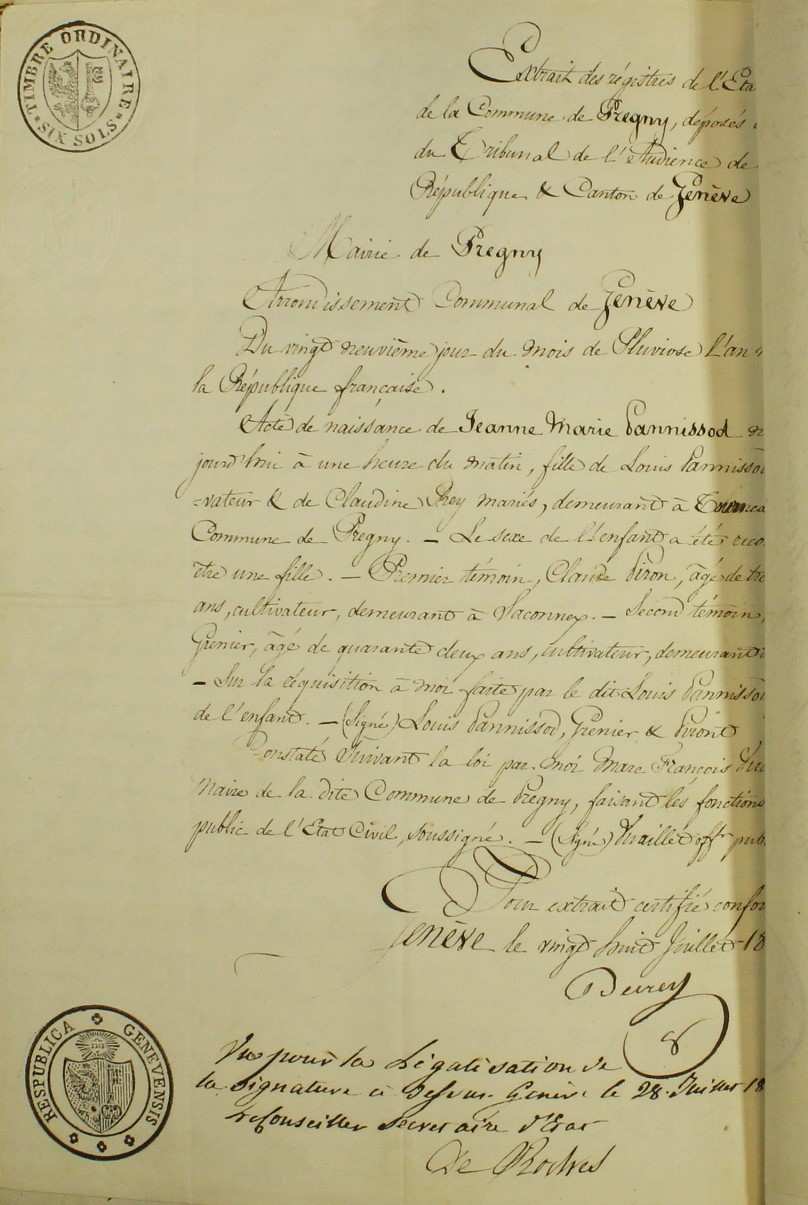 TIMBRE ORDINAIRE
SIX SOLS
Extrait des régistres de l'Eta
de la Commune de Pregny, déposés
du Tribunal de l'Audience de
République & Canton de Genève
Mairie de Pregny
Arrondissement Communal de Genève
Du vingt neuvième jour du mois de Pluviose l'an
la République française.
Acte de naissance de Jeanne Marie Pannissod
jourd'hui à une heure du matin, fille de Louis Pannissod
=vateur & de Claudine Rey mariés, demeurant à
Commune de Pregny. — Le sexe de l'enfant a été reco
être une fille. — Premier témoin, Claude Piron, âgé de tre
ans, cultivateur, demeurant à Saconnex. — Second témoin,
Grenier, âgé de quarante deux ans, cultivateur, demeurant
— Sur la réquisition à moi faite par le dit Louis Pannissod
de l'enfant. — (Signé) Louis Pannissod, Grenier & Piront
Constaté Suivant la loi par moi Marc François
Maire de la dite Commune de Pregny, faisant les fonctions
public de l'Etat Civil, soussigné. — (Signé) offr. pub.
Pour extrait certifié confor
Genève le vingt huit Juillet 18
RESPUBLICA GENEVENSIS
Vu pour la Légalisation de
la signature ci dessus. Genève le 28. Juillet 18
le Conseiller Secretaire d'Etat
De Roches